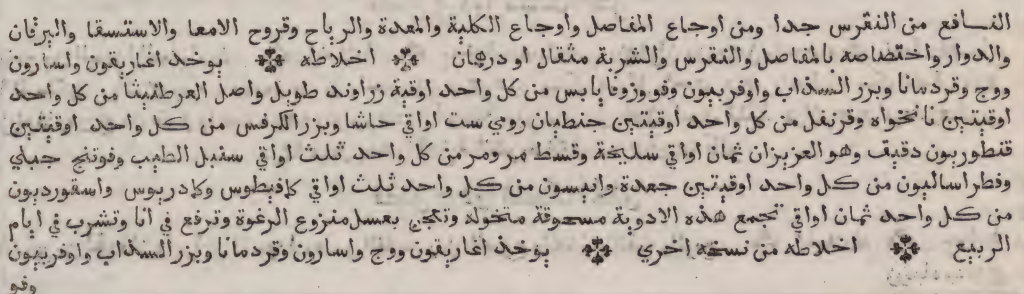 النافع من النقرس جدا ومن اوجاع المفاصل واوجاع الكلية والمعدة والرياح وقروح الامعا والاستسقا واليرقان
والدوار واختصاصه بالمفاصل والنقرس والشربة مثقال او درهان اخلاطه يوخذ اغاريقون واسارون
ووج وقردمانا وبزر السذاب واوفربيون وفو وزوفا يابس من كل واحد اوقية زراوند طويل واصل العرطنيثا من كل واحد
اوقيتين نانخواه وقرنفل من كل واحد اوقيتين جنطيان رومي ست اواقي حاشا وبزر الكرفس من كل واحد اوقيتين
قنطوريون دقيق وهو العزيزان ثمان اواقي سليخة وقسط مر ومر من كل واحد ثلث اواقي سنبل الطيب وفوتنج جبلي
وفطراساليون من كل واحد اوقيتين جعدة وانيسون من كل واحد ثلث اواقي كافيطوس وكادريوس واسقورديون
من كل واحد ثمان اواقي تجمع هذه الادوية مسحوقة منخولة وتعجن بعسل منزوع الرغوة وترفع في انا وتشرب في ايام
الربيع اخلاطه من نسخه اخري يوخذ اغاريقون ووج واسارون وقردمانا وبزر السذاب واوفربيون
وفو